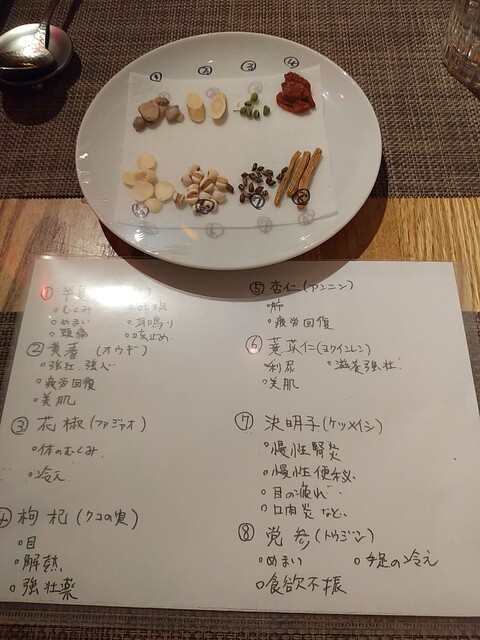 ① ② ③ ④
⑤ ⑥ ⑦ ⑧
① 半夏
○むくみ
○めまい ○耳鳴り
○頭痛 ○咳止め
② 黄耆 (オウギ)
○強壮、強心
○疲労回復
○美肌
③ 花椒 (ファジャオ)
○体のむくみ
○冷え
④ 枸杞 (クコの実)
○目
○解熱
○強壮薬
⑤ 杏仁 (アンニン)
○肺
○疲労回復
⑥ 薏苡仁 (ヨクイニン)
○利尿 ○滋養強壮
○美肌
⑦ 決明子 (ケツメイシ)
○慢性腎炎
○慢性便秘
○目の疲れ
○口内炎など
⑧ 党参 (トウジン)
○めまい ○手足の冷え
○食欲不振